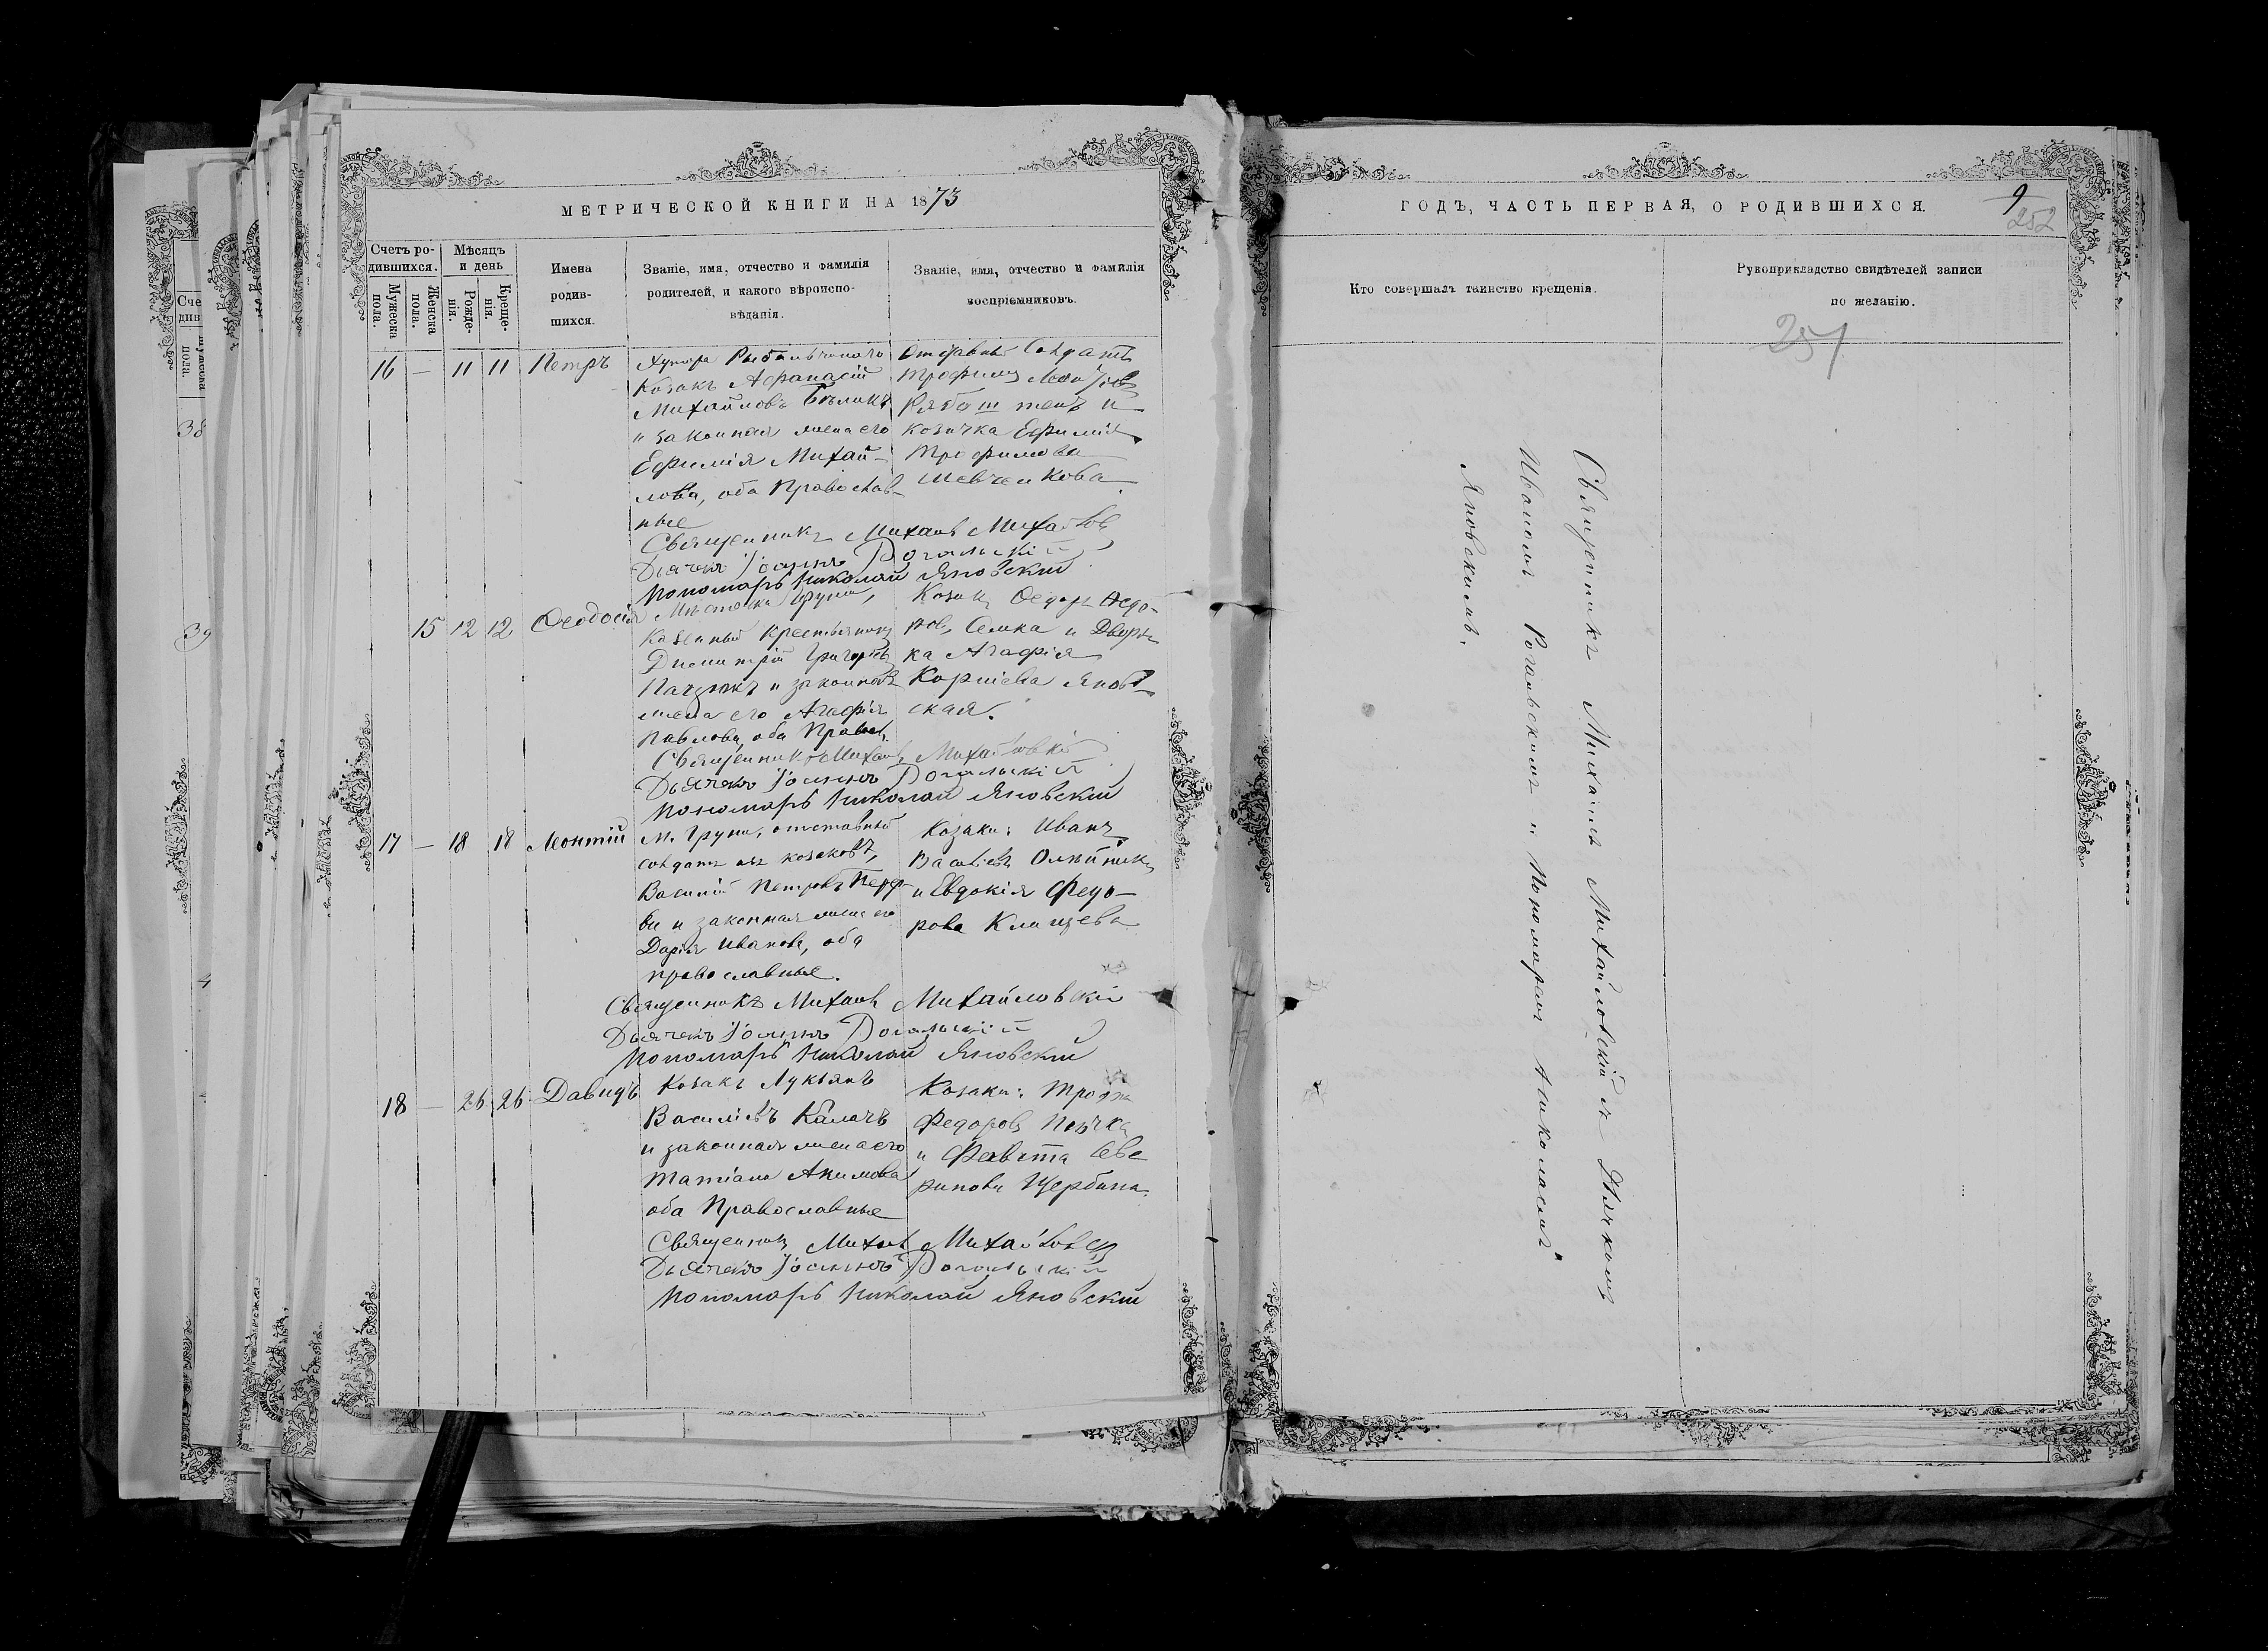 МЕТРИЧЕСКОЙ КНИГИ НА 1873
Счетъ ро-
дившихся.
Мужеска
пола.
Женска
пола.
Мѣсяцъ
и день
Рожде-
нія.
Креще-
нія.
Имена
родив-
шихся.
Званіе, имя, отчество и фамилія
родителей, и какого вѣроиспо-
вѣданія.
Званіе, имя, отчество и фамилія
воспріемниковъ.
16 — 11 11 Петръ
Хутора
Козакъ Афанасій
Михайловъ Бѣликъ
и законная жена его
Ефимія Михай-
лова, оба Православ-
ные
Отставный Солдатъ
Трофимъ
и
козачка Ефимія
Трофимова
Шевченкова.
Священникъ Михаилъ Михайловскій
Дьячекъ Іоаннъ Рогальскій
Пономарь Николай Яновскій
15 12 12 Ѳеодосія
Мѣстечка Груни,
Казенный крестьянинъ
Димитрій Григорьевъ
и законная
жена его Агафія
Павлова, оба Правосл.
Козакъ Ѳедоръ Ѳедо-
ровъ Семка и Дворян
ка Агафія
Корніева Янов-
ская.
Священникъ Михаилъ Михайловскій
Дьячекъ Іоаннъ Рогальскій
Пономарь Николай Яновскій
17 — 18 18 Леонтій
М. Груни, отставный
солдатъ изъ козаковъ,
Василій Петровъ
и законная жена его
Дарія Иванова, оба
православные.
Козаки: Иванъ
Васильевъ Олѣйникъ
и Евдокія Федо-
рова
Священникъ Михаилъ Михайловскій
Дьячекъ Іоаннъ Рогальскій
Пономарь Николай Яновскій
18 — 26 26 Давидъ
Козакъ Лукьянъ
Василіевъ Калачъ
и законная жена его
Татіана Акимова
оба Православные
Козаки:
Федоровъ
и
Щербина.
Священникъ Михаилъ Михайловскій
Дьячекъ Іоаннъ Рогальскій
Пономарь Николай Яновскій
ГОДЪ, ЧАСТЬ ПЕРВАЯ, О РОДИВШИХСЯ.
9
252
Кто совершалъ таинство крещенія.
Рукоприкладство свидѣтелей записи
по желанію.
Священникъ Михаилъ Михайловскій съ Дьячкомъ
Иваномъ Рогальскимъ и Пономаремъ Николаемъ
Яновскимъ.
Сче
див
пола.
38
39
4